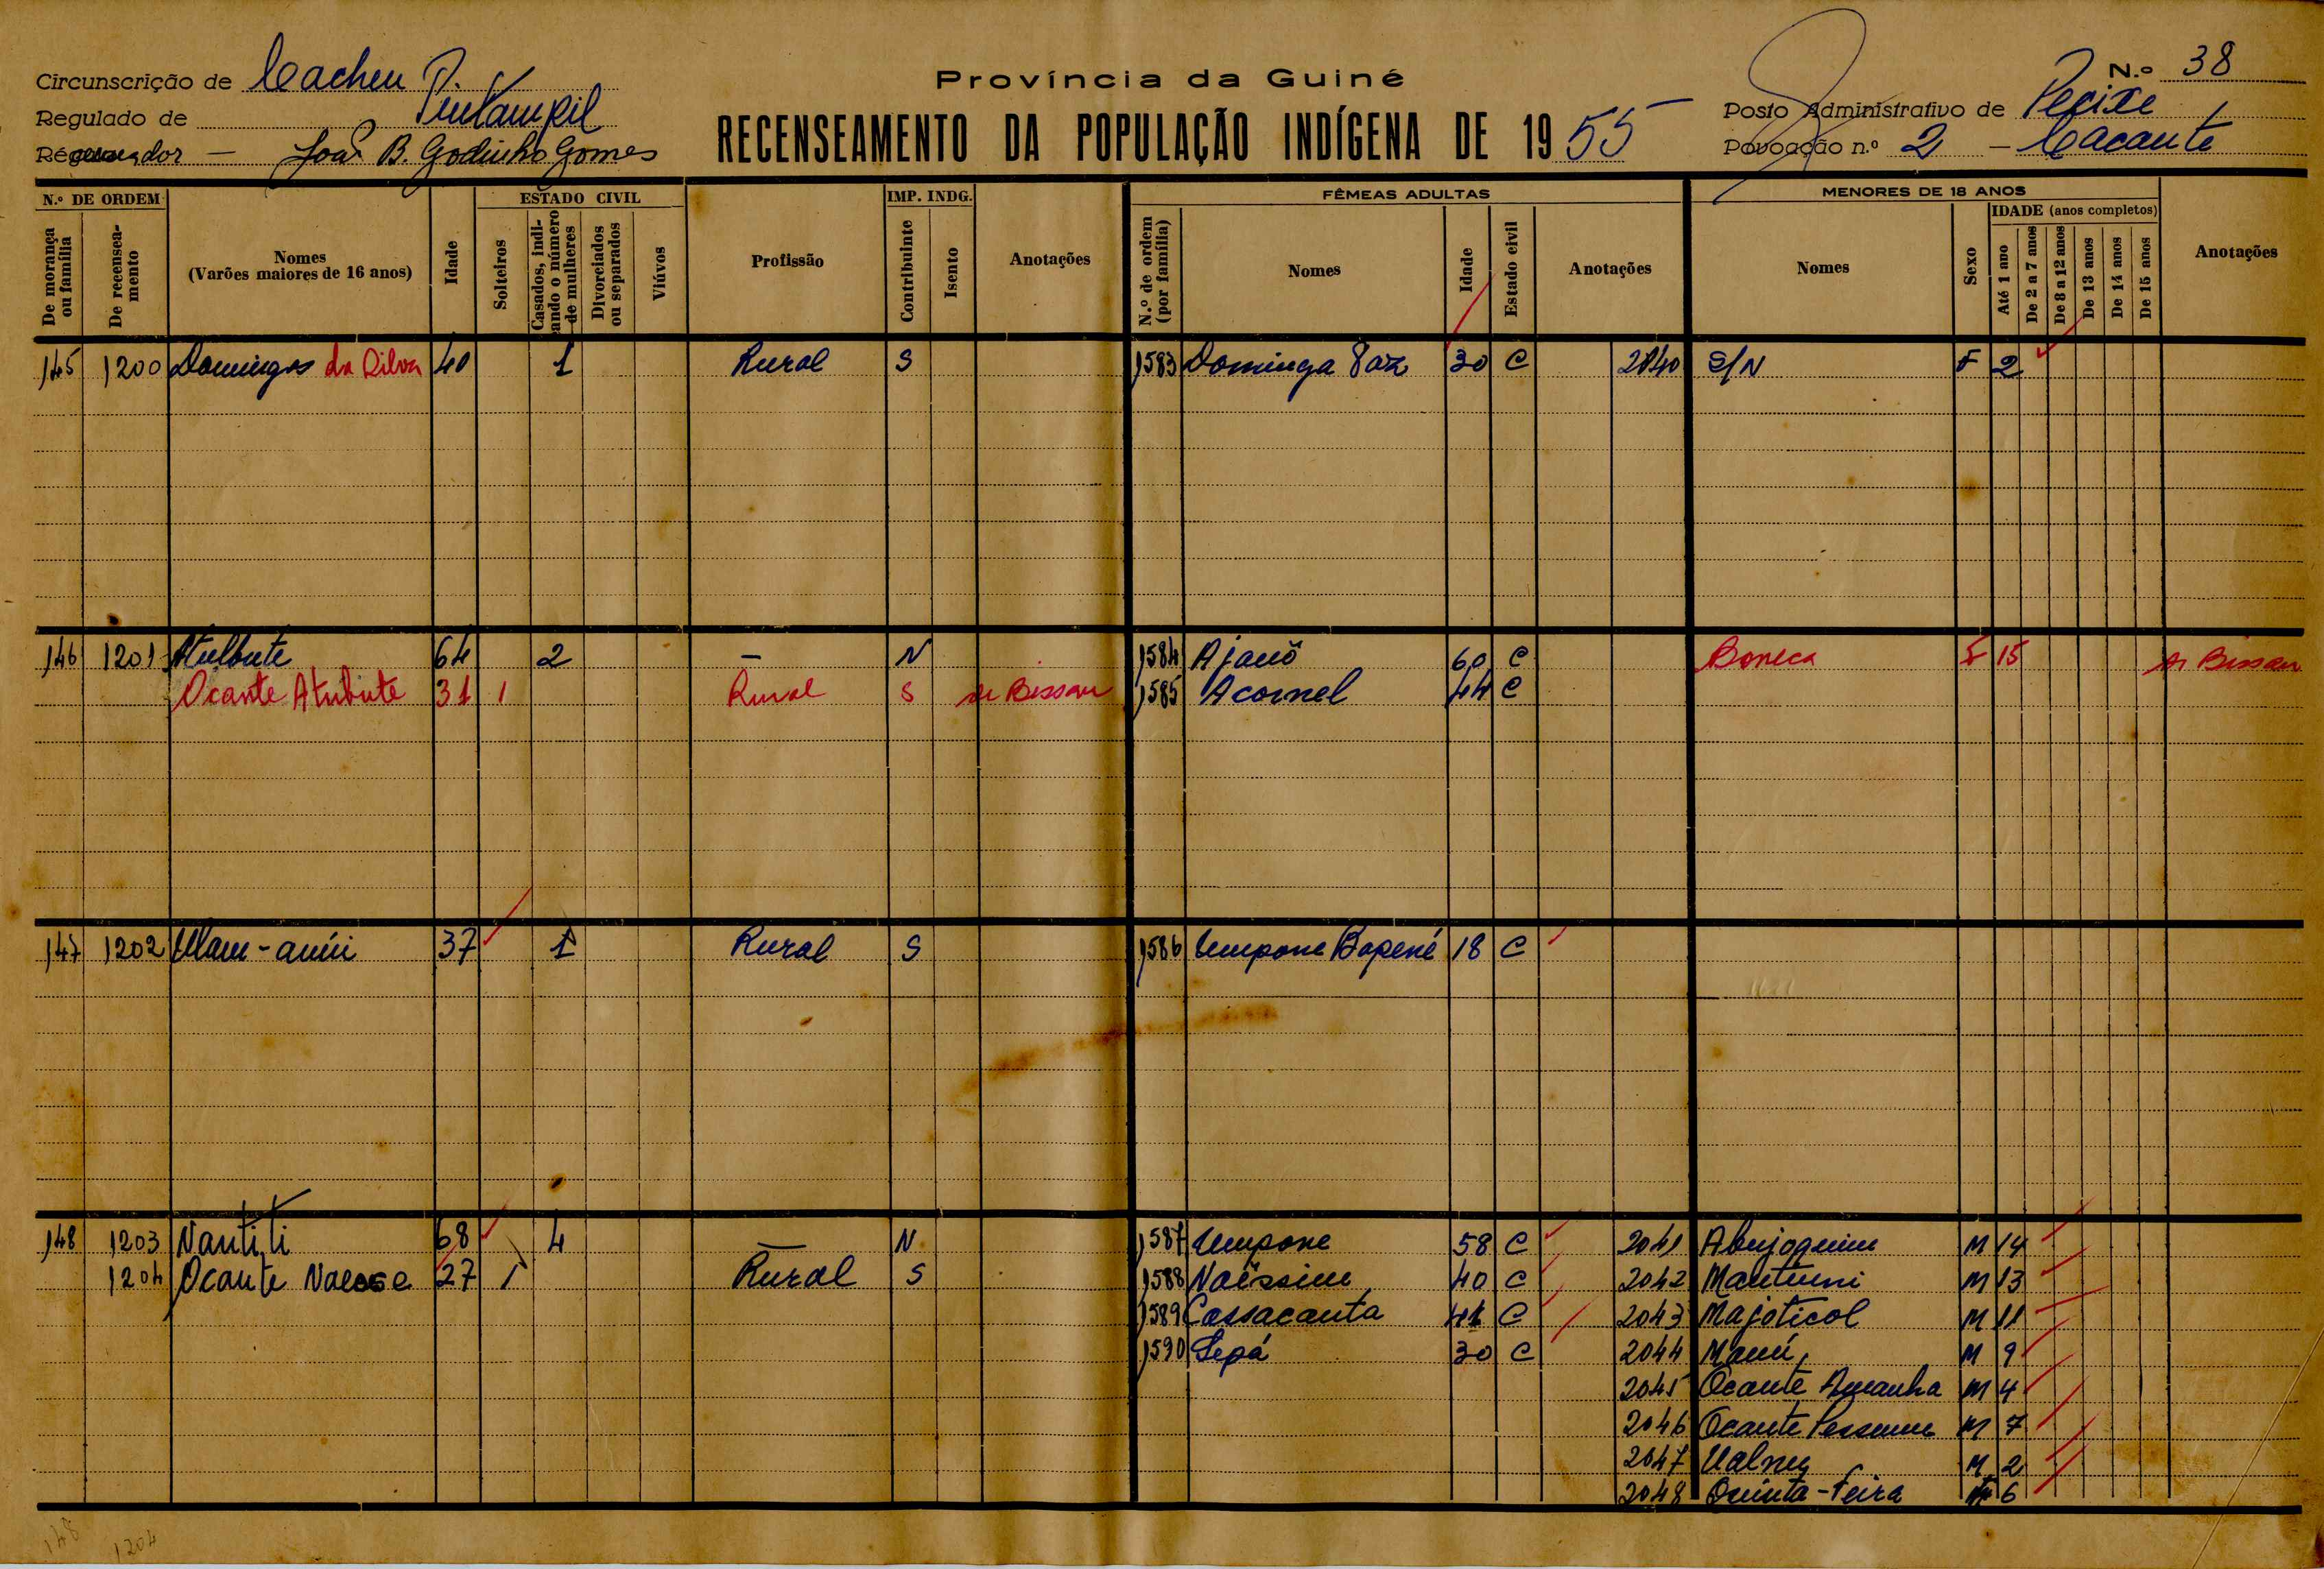 Circunscrição de Cacheu
Regulado de Tintampil
Recenseador — João B. Godinho Gomes
Província da Guiné
RECENSEAMENTO DA POPULAÇÃO INDÍGENA DE 1955
N.º 38
Posto Administrativo de Pecixe
Povoação n.º 2 — Cacante
N.º DE ORDEM
De morança ou família
De recenseamento
Nomes
(Varões maiores de 16 anos)
Idade
ESTADO CIVIL
Solteiros
Casados, indicando o número de mulheres
Divorciados ou separados
Viúvos
Profissão
IMP. INDG.
Contribuinte
Isento
Anotações
FÊMEAS ADULTAS
N.º de ordem (por família)
Nomes
Idade
Estado civil
Anotações
MENORES DE 18 ANOS
Nomes
Sexo
IDADE (anos completos)
Até 1 ano
De 2 a 7 anos
De 8 a 12 anos
De 13 anos
De 14 anos
De 15 anos
Anotações
145 1200 Domingos da Silva 40 1 Rural S 1583 Dominga Vaz 30 C 2040 S/N F 2
146 1201 Atulbute 64 2 — N 1584 Ajauô 60 C Boneca F 15 Bissau
Ocante Atubute 31 1 Rural S Bissau 1585 Acornel 44 C
147 1202 37 1 Rural S 1586 Umpone Bapené 18 C
148 1203 Nantiti 68 4 — N 1587 Umpone 58 C 2041 Abujoquim M 14
1204 Ocante Naesse 27 1 Rural S 1588 Naissim 40 C 2042 M 13
1589 Cassacanta C 2043 Majoticol M 11
1590 Sepá 30 C 2044 Manú M 9
2045 Ocante Amanha M 4
2046 Ocante M 7
2047 M 2
2048 Quinta-Feira 6
148 1204